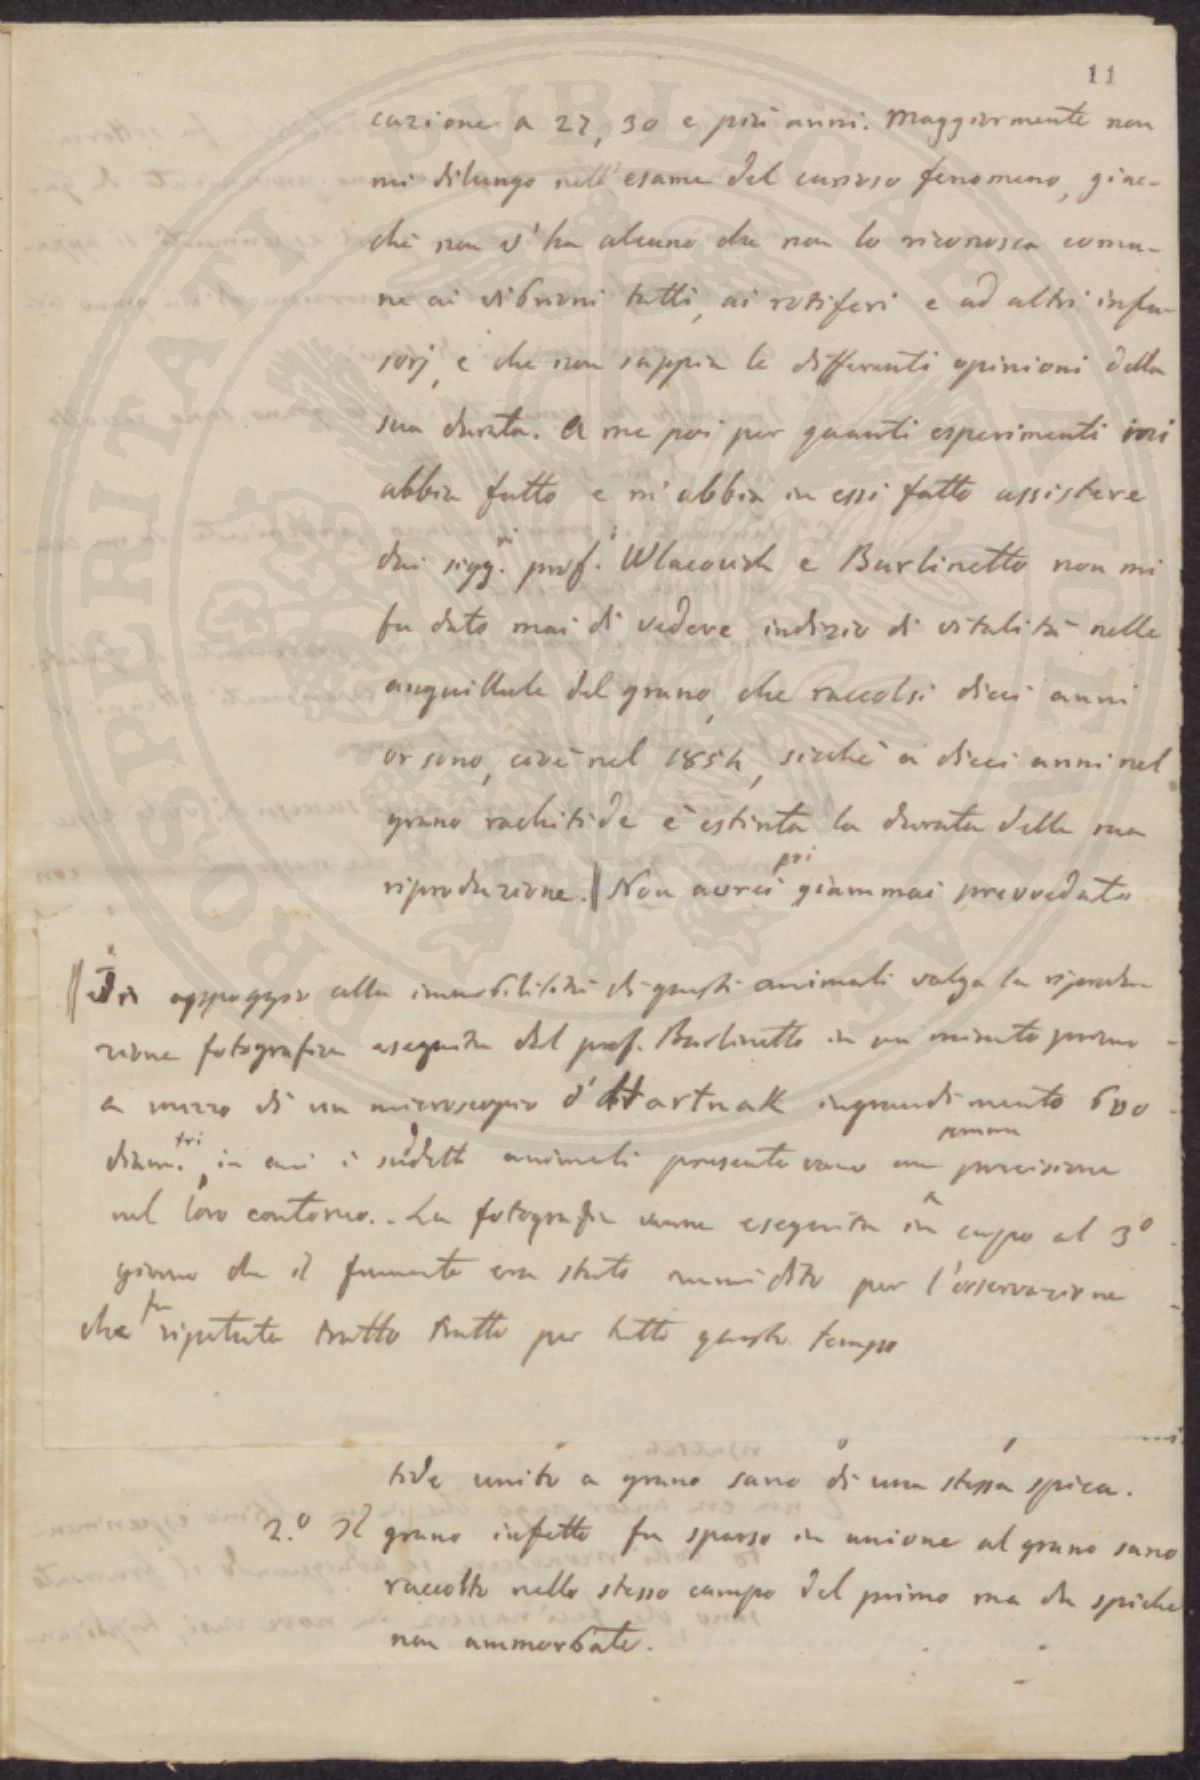 11
cazione a 27, 30 e più anni. Maggiormente non
mi dilungo nell'esame del curioso fenomeno, giac-
chè non v'ha alcuno che non lo riconosca comu-
ne ai vibrioni tutti, ai rotiferi e ad altri infu-
sorj, e che non sappia le differenti opinioni della
sua durata. A me poi per quanti esperimenti
abbia fatto e m'abbia in essi fatto assistere
dai sigg.ri prof.i Wlacovich e Burlinetto non mi
fu dato mai di vedere indizio di vitalità nelle
anguillule del grano, che raccolsi dieci anni
or sono, cioè nel 1854, sicchè a dieci anni nel
grano rachitide è estinta la durata della sua
riproduzione. || Non avrei poi giammai preveduto
|| In appoggio alla immobilità di questi animali valga la riprodu
zione fotografica eseguita dal prof. Burlinetto in un minuto primo
a mezzo di un microscopio d'Hartnak ingrandimento 600
diam.tri, in cui i sudetti animali presentavano una somma precisione
nel loro contorno.. La fotografia venne eseguita in capo al 3°
giorno che il frumento era stato inumidito per l'osservazione
che fu ripetuta tratto tratto per tutto questo tempo
tide unito a grano sano di una stessa spica.
2.° Il grano infetto fu sparso in unione al grano sano
raccolto nello stesso campo del primo ma da spiche
non ammorbate.
PROSPERITATI PVBLICAE AVGENDAE